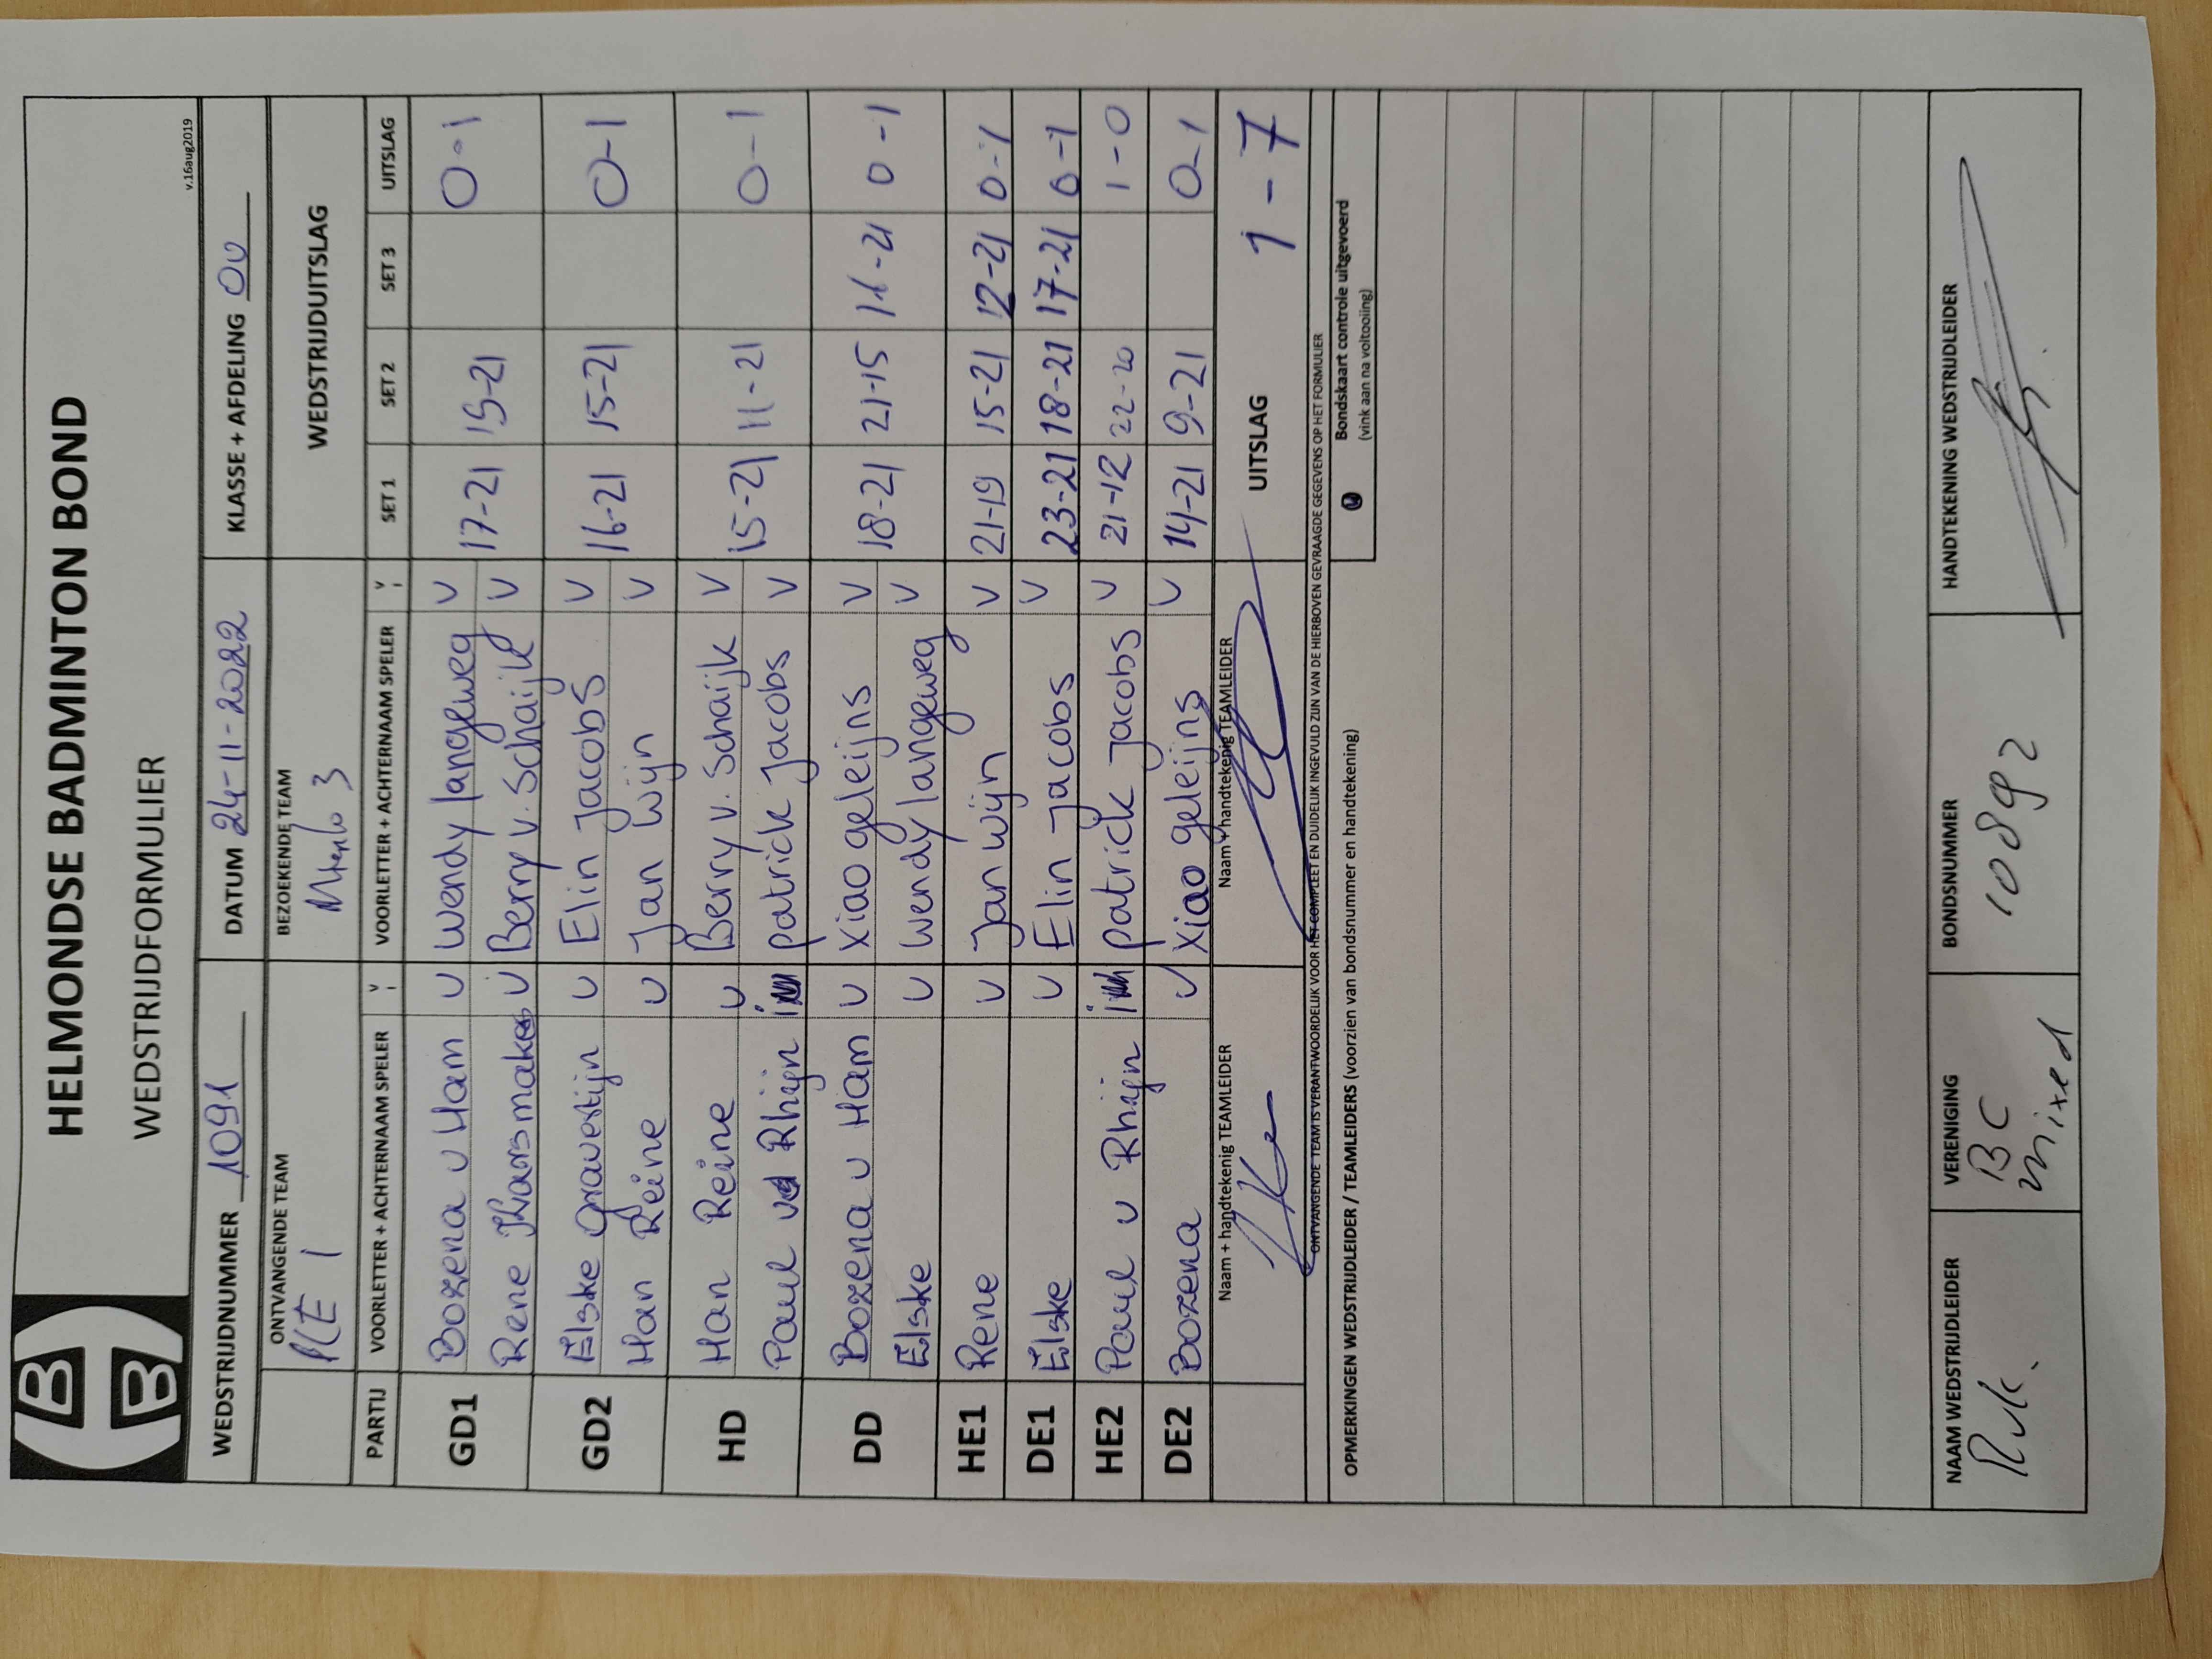 B B
HELMONDSE BADMINTON BOND
WEDSTRIJDFORMULIER
v.16aug2019
WEDSTRIJDNUMMER 1091 DATUM 24-11-2022 KLASSE + AFDELING OV
ONTVANGENDE TEAM BEZOEKENDE TEAM WEDSTRIJDUITSLAG
1 3
PARTIJ VOORLETTER + ACHTERNAAM SPELER V VOORLETTER + ACHTERNAAM SPELER V SET 1 SET 2 SET 3 UITSLAG
GD1 Bozena v Ham v Wendy langeweg v 17-21 15-21 0-1
Rene v Berry v. Schaijk v
GD2 Elske v Elin Jacobs v 16-21 15-21 0-1
Han Reine v Jan Wijn v
HD Han Reine v Berry v. Schaijk v 15-21 11-21 0-1
Paul v Rhijn inv patrick Jacobs v
DD Bozena v Ham v Xiao geleijns v 18-21 21-15 0-1
Elske v wendy langeweg v
HE1 Rene v Jan wijn v 21-19 15-21 12-21 0-1
DE1 Elske v Elin Jacobs v 23-21 18-21 17-21 0-1
HE2 Paul v Rhijn inv patrick Jacobs v 21-12 22-20 1-0
DE2 Bozena v Xiao geleijns v 14-21 9-21 0-1
Naam + handtekenig TEAMLEIDER Naam + handtekenig TEAMLEIDER UITSLAG 1-7
ONTVANGENDE TEAM IS VERANTWOORDELIJK VOOR HET COMPLEET EN DUIDELIJK INGEVULD ZIJN VAN DE HIERBOVEN GEVRAAGDE GEGEVENS OP HET FORMULIER
OPMERKINGEN WEDSTRIJDLEIDER / TEAMLEIDERS (voorzien van bondsnummer en handtekening) Bondskaart controle uitgevoerd
(vink aan na voltooiing)
NAAM WEDSTRIJDLEIDER VERENIGING BONDSNUMMER HANDTEKENING WEDSTRIJDLEIDER
BC 10892
Mixed